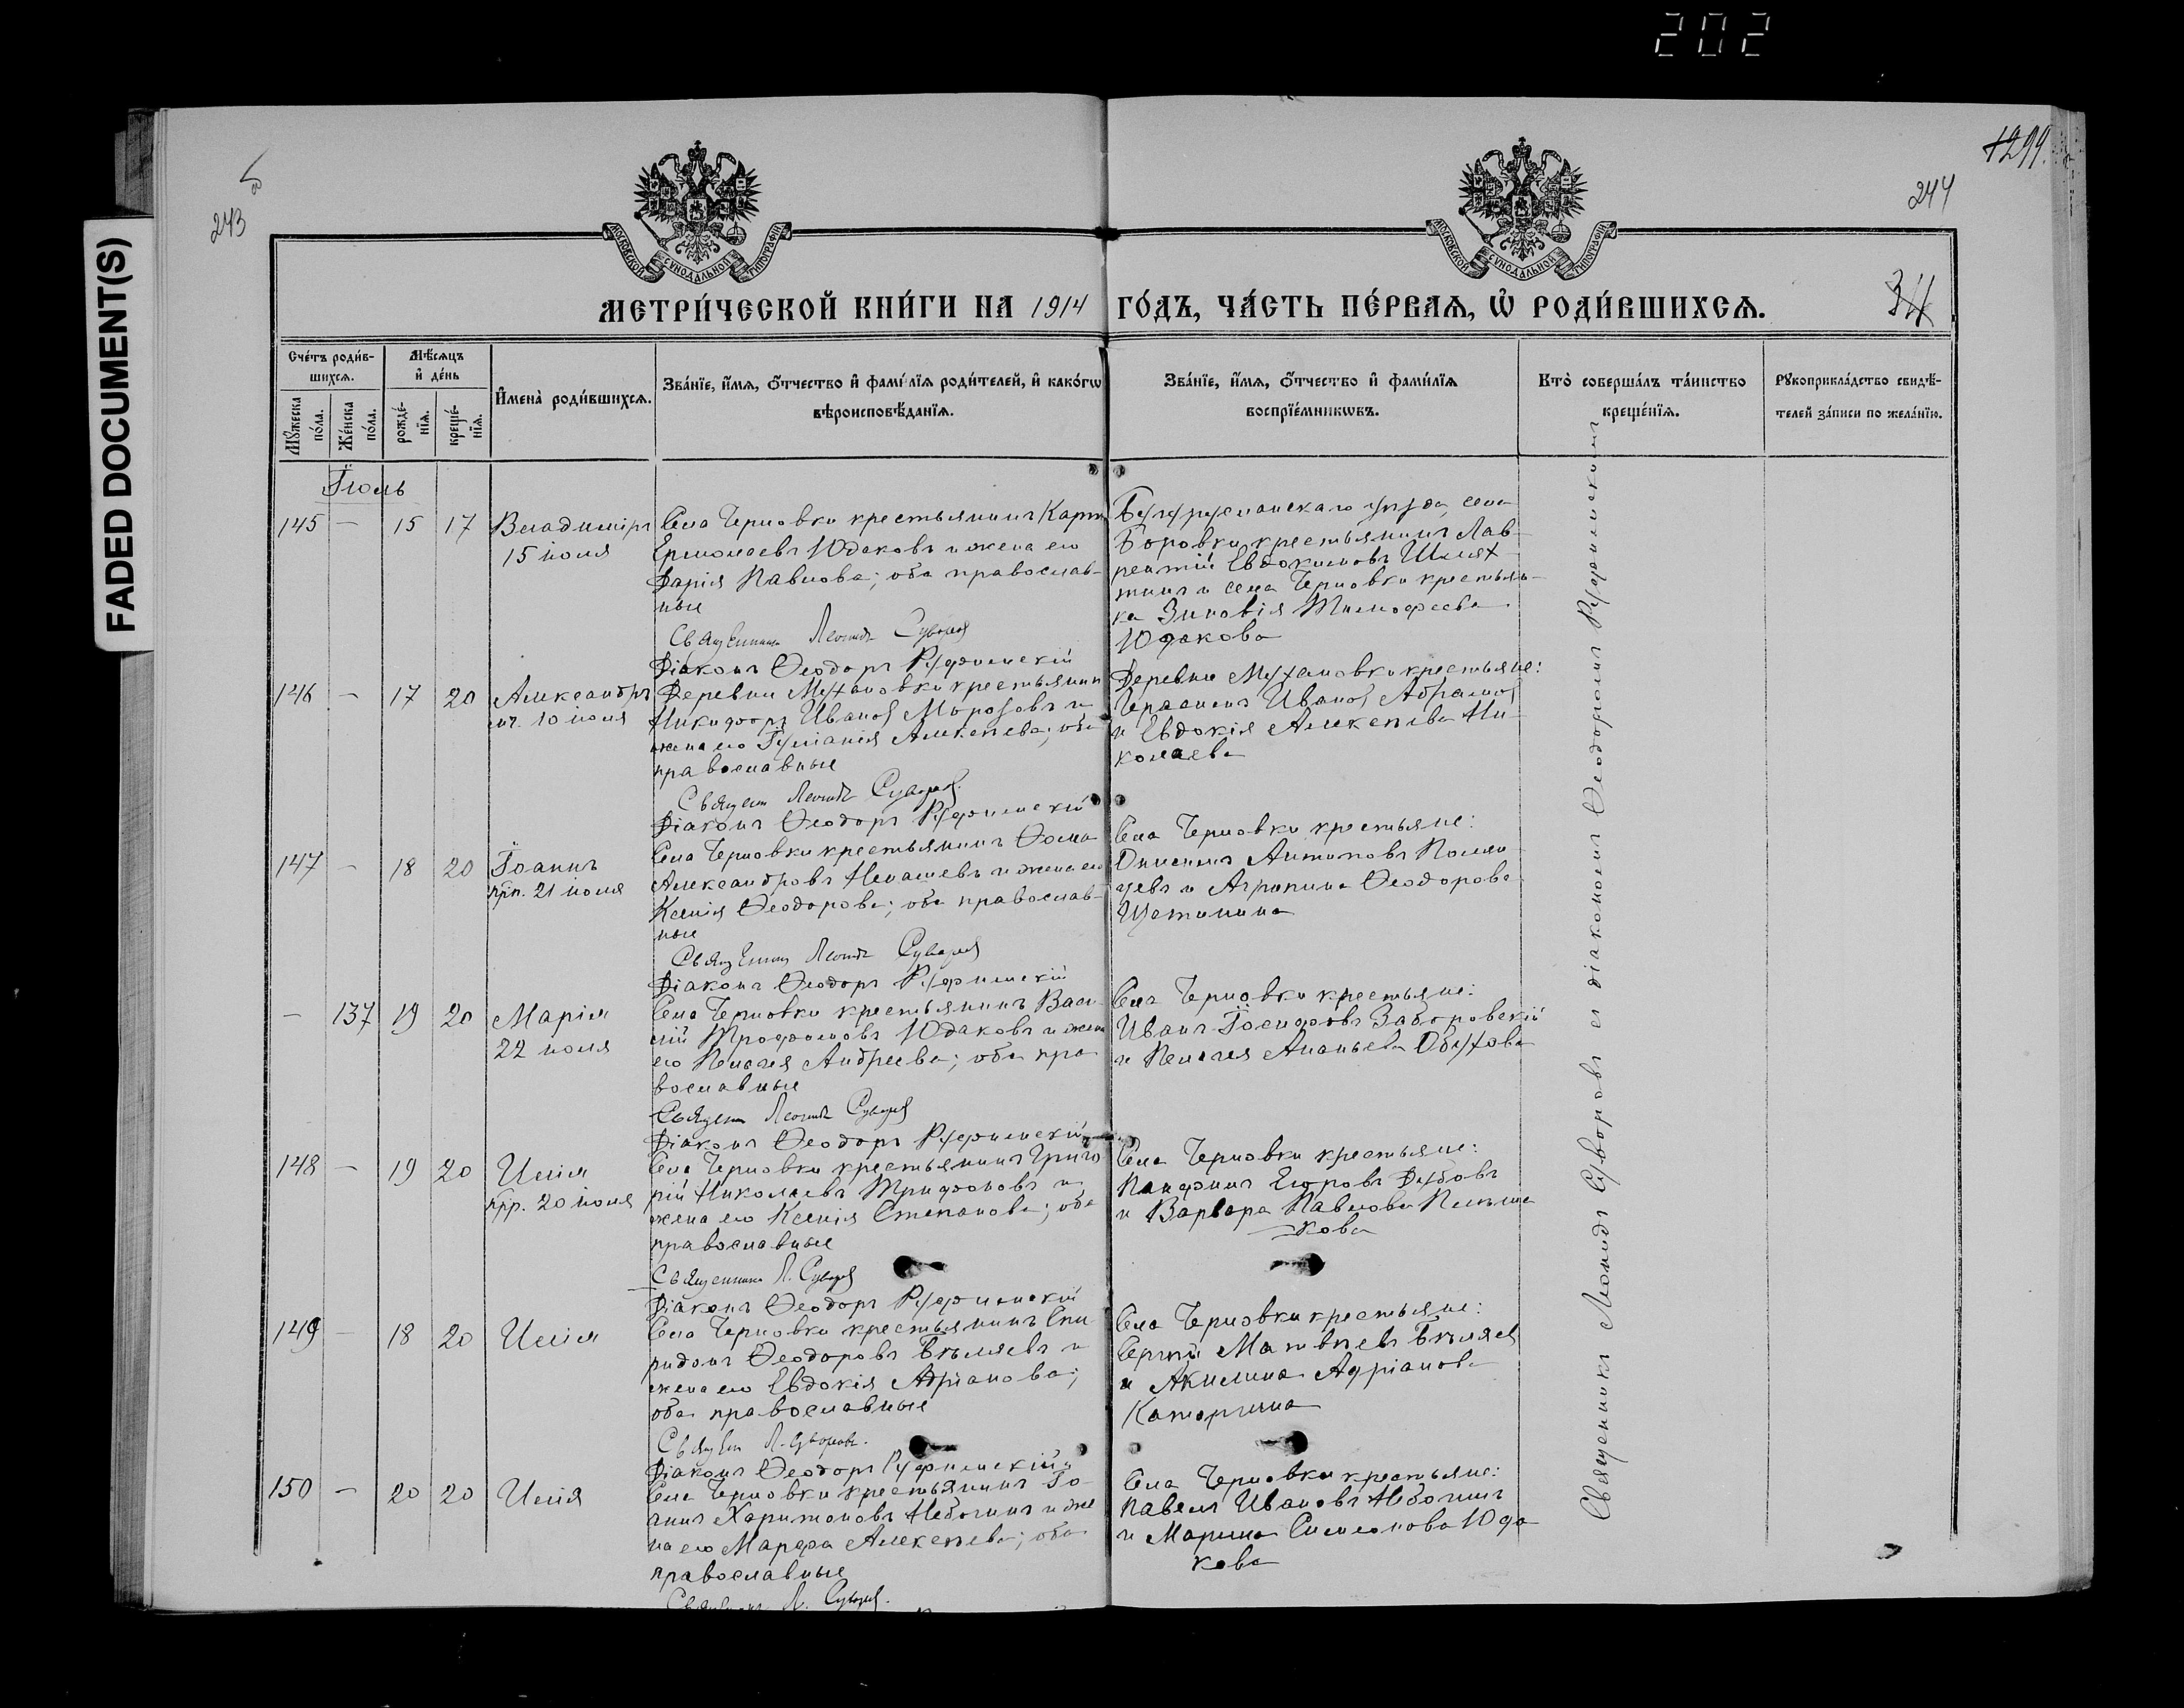 202
FADED DOCUMENT(S)
243
1299.
244
МОСКОВСКОЙ СѴНОДАЛЬНОЙ ТИПОГРАФІИ
МОСКОВСКОЙ СѴНОДАЛЬНОЙ ТИПОГРАФІИ
МЕТРИ́ЧЕСКОЙ КНИ́ГИ НА 1914 ГО́ДЪ, ЧА́СТЬ ПЕ́РВАѦ, Ѽ РОДИ́ВШИХСѦ.
34
Сче́тъ роди́в-
шихсѧ.
Мꙋ́жеска
по́ла.
Же́нска
по́ла.
Мѣ́сѧцъ
и҆ де́нь
рожде́-
нїѧ.
креще́-
нїѧ.
И҆мена̀ роди́вшихсѧ.
Зва́нїе, и҆́мѧ, ѻ҆́тчество и҆ фами́лїѧ роди́телей, и҆ како́гѡ
вѣроисповѣ́данїѧ.
Зва́нїе, и҆́мѧ, ѻ҆́тчество и҆ фами́лїѧ
воспрїе́мникѡвъ.
Кто̀ соверша́лъ та́инство
креще́нїѧ.
Рꙋкоприкла́дство свидѣ́-
телей за́писи по жела́нїю.
Іюль
145 — 15 17 Владиміръ
15 іюля
Села Черновки крестьянинъ Карпъ
Ермолаевъ Юдаковъ и жена его
Дарія Павлова; оба православ-
ные
Священникъ Леонидъ Суворов
Діаконъ Ѳеодоръ Руфимскій
Бугурусланскаго уѣзда, села
Боровки крестьянинъ Лав-
рентій Евдокимовъ
и села Черновки крестьян-
ка Зиновія Тимофеева
Юдакова
146 — 17 20 Александръ
мч. 10 іюля
Деревни Мухановки крестьянинъ
Никифоръ Иванов Морозовъ и
жена его Іуліанія Алексѣева; оба
православные
Священ Леонидъ Суворов.
Діаконъ Ѳеодоръ Руфимскій
Деревни Мухановки крестьяне:
Герасимъ Иванов Абрамов
и Евдокія Алексѣева Ни-
колаева
147 — 18 20 Іоаннъ
прп. 21 іюля
Села Черновки крестьянинъ Ѳома
Александровъ Ненашевъ и жена его
Ксенія Ѳеодорова; оба православ-
ные
Священникъ Леонидъ Суворов
Діаконъ Ѳеодоръ Руфимскій
Села Черновки крестьяне:
Онисимъ Антиповъ
и Агрипина Ѳеодорова
Щетинина
— 137 19 20 Марія
22 іюля
Села Черновки крестьянинъ Васи-
лій Трофимовъ Юдаковъ и жена
его Пелагея Андреева; оба пра-
вославные
Священ Леонидъ Суворов
Діаконъ Ѳеодоръ Руфимскій
Села Черновки крестьяне:
Иванъ Іосифовъ Заборовскій
и Пелагея Ананьева Обухова
148 — 19 20 Илія
прр. 20 іюля
Села Черновки крестьянинъ Григо
рій Николаевъ Трифоновъ и
жена его Ксенія Степанова; оба
православные
Священникъ Л. Суворов
Діаконъ Ѳеодоръ Руфимскій
Села Черновки крестьяне:
Панфилъ Егоровъ Дубовъ
и Варвара Павлова Пенъш
кова
149 — 18 20 Илія
Села Черновки крестьянинъ Спи-
ридонъ Ѳеодоровъ Бѣляевъ и
жена его Евдокія Адріанова;
оба православные
Священ Л. Суворовъ.
Діаконъ Ѳеодоръ Руфимскій
Села Черновки крестьяне:
Сергій Матвѣевъ Бѣляев
и Акилина Адріанова
Каторгина
150 — 20 20 Илія
Села Черновки крестьянинъ Іо-
аннъ Харитоновъ Небогинъ и же
на его Марфа Алексѣева; оба
православные
Священникъ Л. Суворов.
Села Черновки крестьяне:
Павелъ Ивановъ Небогинъ
и Марина Симеонова Юда
кова
Священникъ Леонидъ Суворовъ съ діакономъ Ѳеодоромъ Руфимскимъ